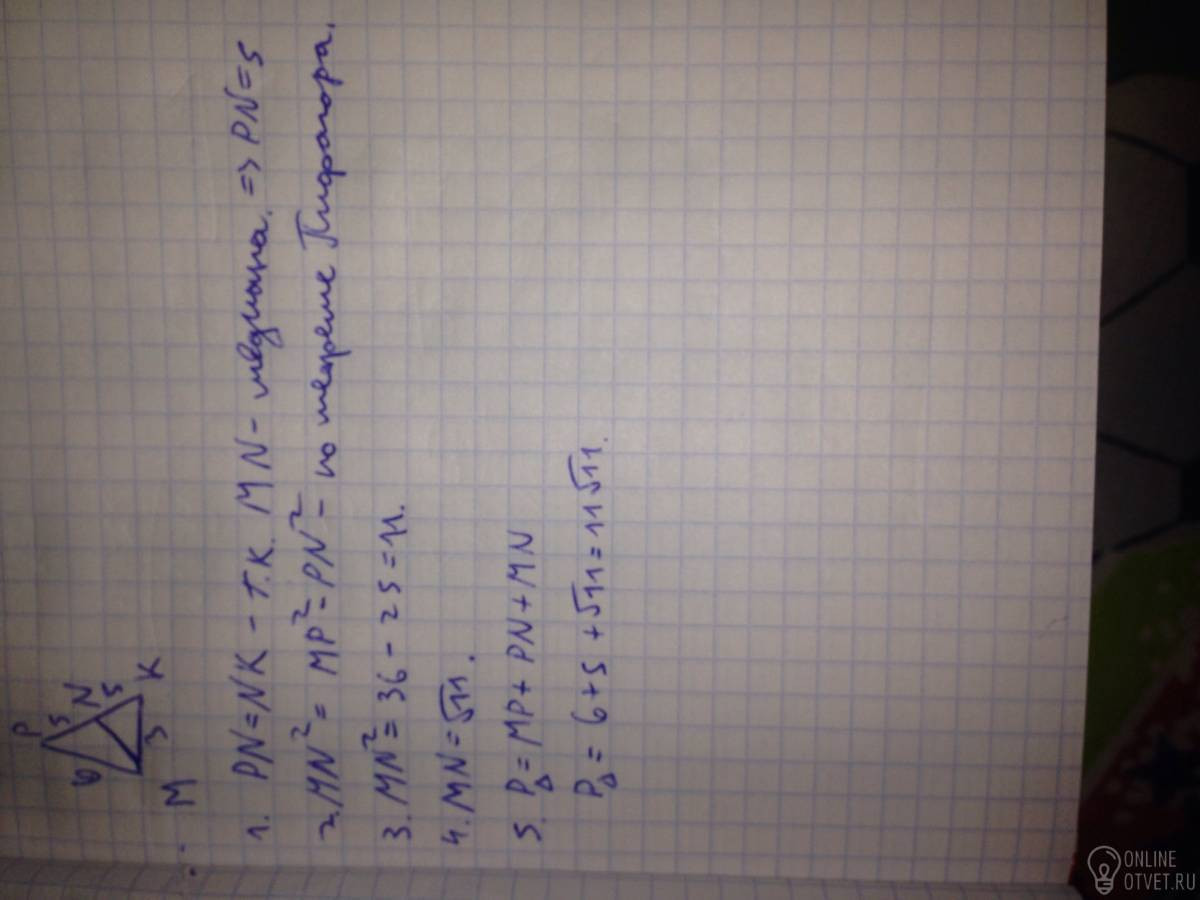 P
6
5
N
5
K
3
M
1. PN=NK - т.к. MN - медиана. => PN=5
2. MN²= MP²-PN² - по теореме Пифагора.
3. MN²= 36 - 25 = 11.
4. MN=√11.
5. P△= MP + PN + MN
P△ = 6+5+√11=11√11.
ONLINE
OTVET.RU